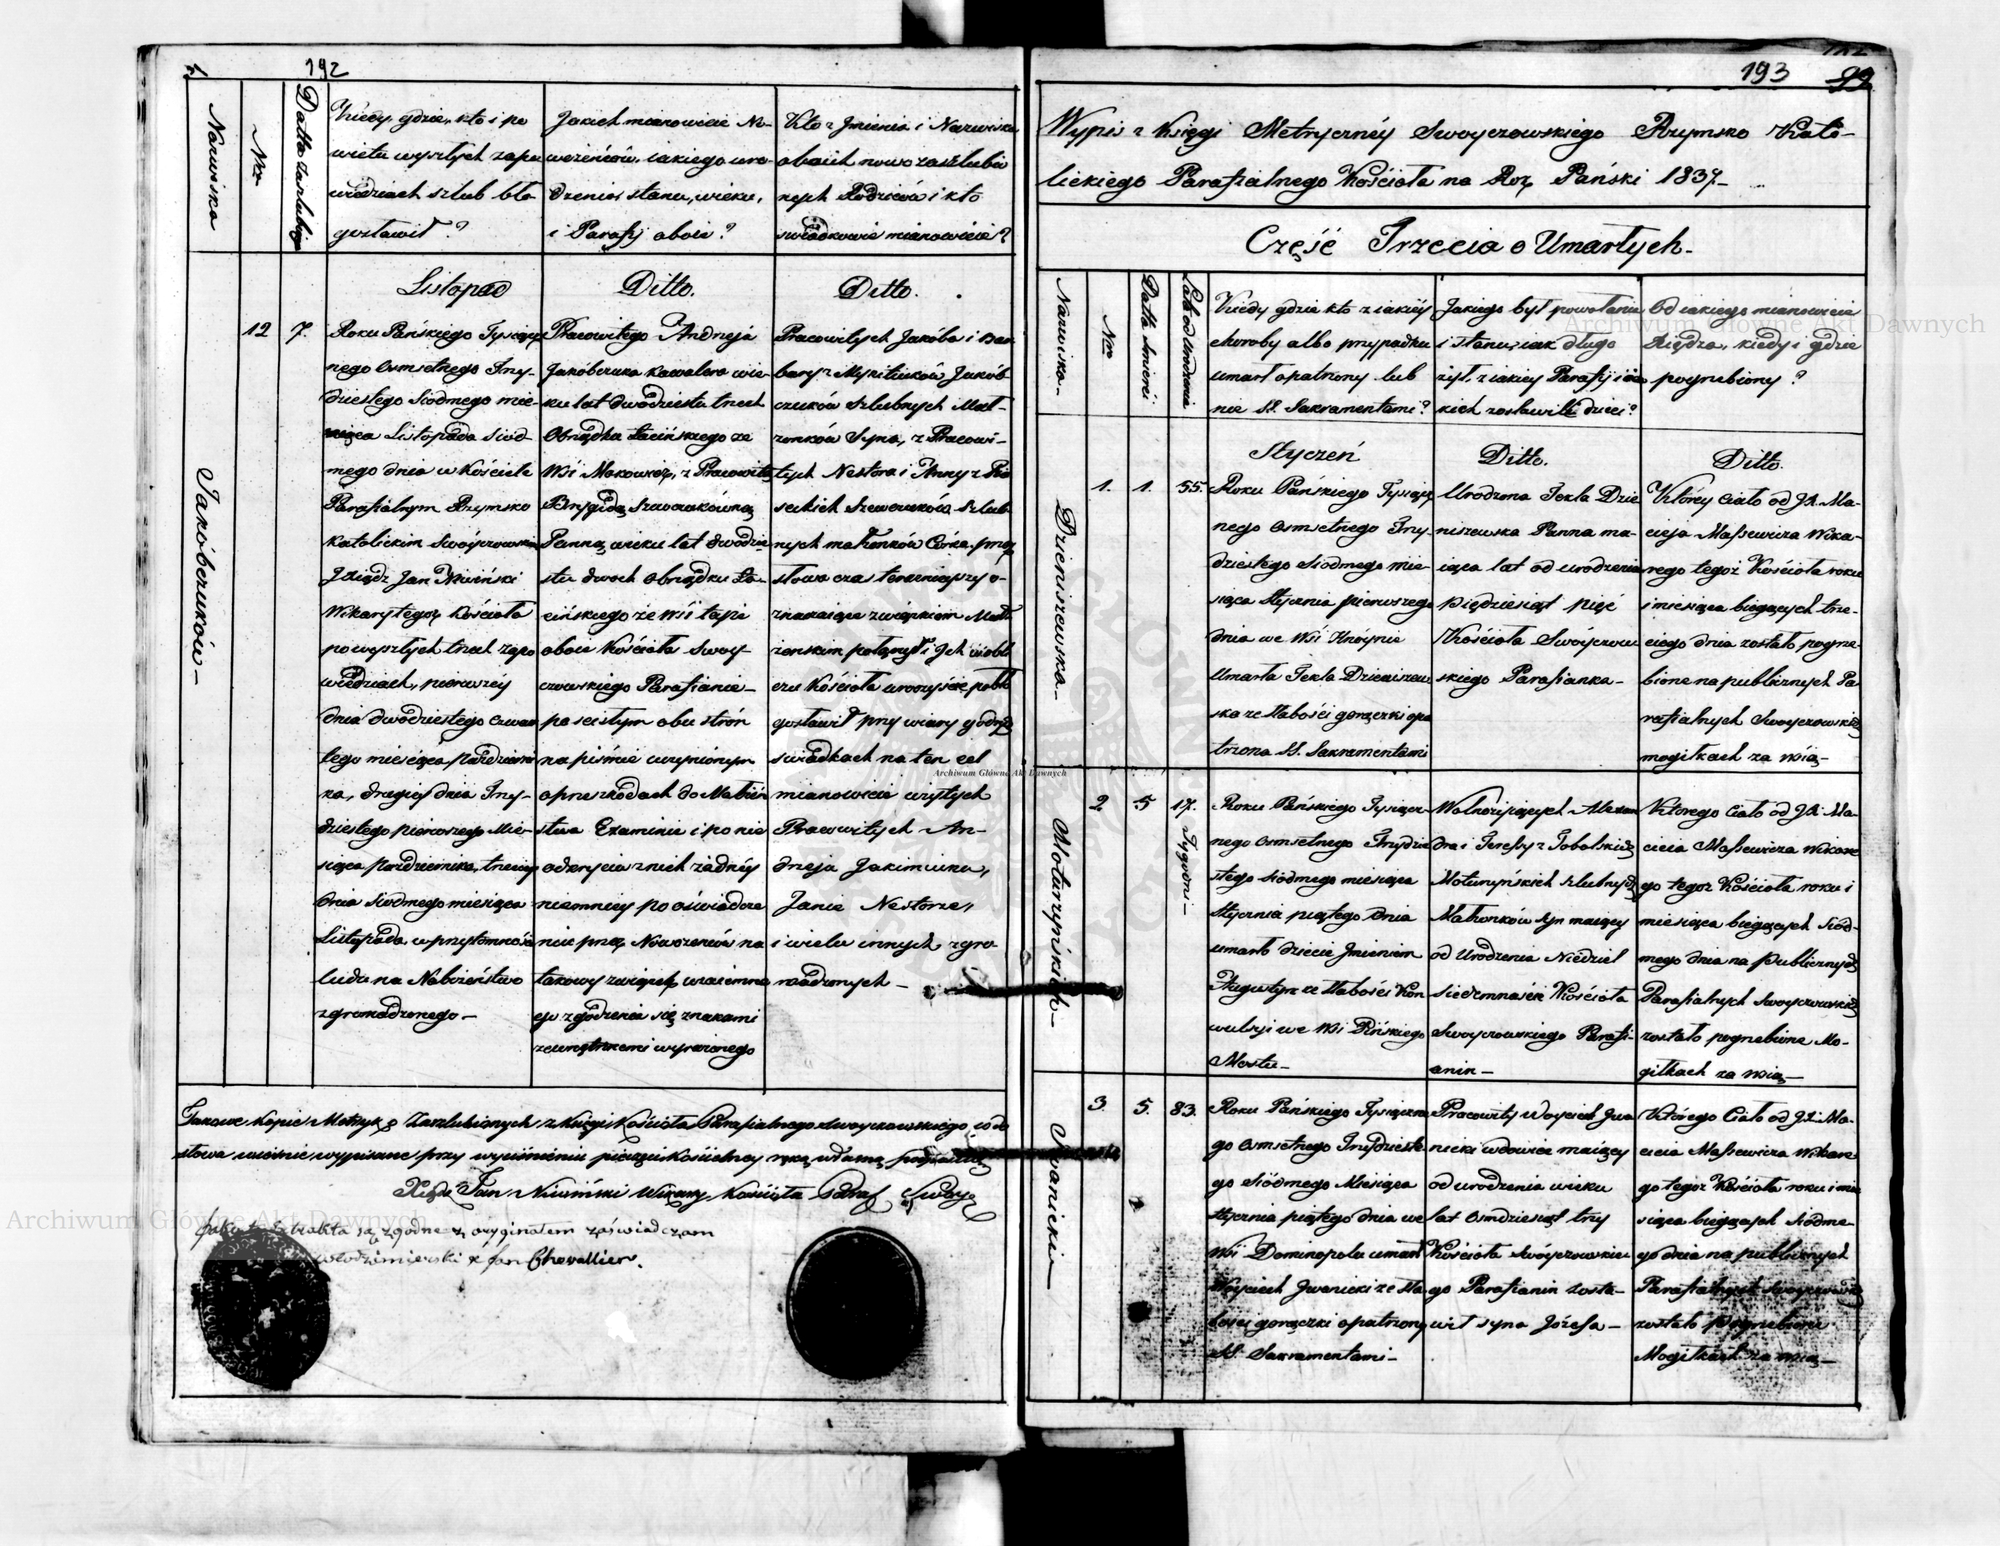 192
Nazwisko
Nro
Datta zaslubin
Kiedy, gdzie, kto i po
wielu wyszłych zapo
wiedziach szlub bło
gosławił?
Jakich mianowicie No-
wożeńców, iakiego uro-
dzenia stanu, wieku,
i Parafij oboie?
Kto z Jmienia i Nazwiska
oboich nowo zaszlubio
nych Rodziców i kto
swiadkowie mianowicie?
Listopad
Ditto.
Ditto.
Jakóbczuków
12
7.
Roku Pańskiego Tysiącz
nego Osmsetnego Trzy-
dziestego Siódmego mie-
siąca Listopada Siód-
mego dnia w Kościele
Parafialnym Rzymsko
Katolickim Swoyczowskim
Xsiądz Jan Niwiński
Wikary tegoż Kościoła
po wyszłych trzech zapo
wiedziach, pierwszéy
dnia dwódziestego czwar
tego miesiąca Październi
ka, drugiéy dnia Trzy-
dziestego pierwszego Mie-
siąca Października, trzeciey
dnia Siódmego miesiąca
Listopada w przytomności
ludu na Nabożeństwo
zgromadzonego
Pracowitego Andrzeja
Jakóbczuka Kawalera wie-
ku lat dwódziestu trzech
Obrządku Łacińskiego ze
Wsi Makowicz, z Pracowitą
Brygidą Szewczukówną
Panną, wieku lat dwódzie-
stu dwoch Obrządku Ła-
cińskiego ze Wsi tapie
oboie Kościoła Swoy-
czowskiego Parafianie
po scisłym obu strón
na piśmie uczynionym
o przeszkodach do Małżeń
stwa Examinie i po nie
odkryciu z nich żadnéy
niemniey po oświadcze
niu przez Nowożeńców na
takowy związek wzaiemne
go zgodzenia się znakami
zewnętrznemi wyrażonego
Pracowitych Jakóba i Bar
bary z Mykiliuków Jakób
czuków Szlubnych Mał-
żonków Syna, z Pracowi-
tych Nestora i Anny z
Szewczuków Szlub
nych małżonków Córką, przez
słowa czas teraznieyszy o-
znaczaiące związkiem Mał
żeńskim połączył i Jch w obli
czu Kościoła uroczyście pobło
gosławił przy wiary godnych
swiadkach na ten cel
mianowicie użytych
Pracowitych An-
drzeja Jakimiuku,
Janie Nestorze,
i wielu innych zgro
madzonych
Takowe Kopie Metryk o Zaszlubionych z Księgi Kościoła Parafialnego Swoyczowskiego, co do
słowa wiernie wypisane przy wyciśnieniu pieczęci Kościelney ręką własną podpisuię
Xiądz Jan Niwiński Wikary Kościoła Paraf Swoycz
Jako te Extrakta są zgodne z oryginałem zaświadczam
włodzimierski X Jan Chevallier.
193
99
Wypis z Księgi Metryczney Swoyczowskiego Rzymsko Kato-
lickiego Parafialnego Kościoła na Rok Pański 1837
Część Trzecia o Umarłych
Nazwisko
Nro
Datta śmierci
Lata od Urodzenia
Kiedy gdzie kto z iakiéy
choroby albo przypadku
umarł opatrzony lub
nie SS. Sakramentami?
Jakiego był powołania
i stanu, iak długo
żył, z iakiey Parafij i ia
kich zostawił dzieci?
Od iakiego mianowicie
Xiędza, kiedy i gdzie
pogrzebiony?
Styczeń
Ditto.
Ditto.
Dzieniszewska
1.
1.
55.
Roku Pańskiego Tysiącz
nego Osmsetnego Trzy-
dziestego Siódmego mie-
siąca Stycznia pierwszego
dnia we Wsi
Umarła Tekla Dzieniszew
ska ze słabości gorączki opa
trzona SS. Sakramentami
Urodzona Tekla Dzie
niszewska Panna ma-
iąca lat od urodzenia
Pięćdziesiąt pięć
Kościoła Swóyczow
skiego Parafianka
Któréy Ciało od JX. Ma-
cieja Massewicza Wika-
rego tegoż Kościoła roku
i miesiąca bieżących trze-
ciego dnia zostało pogrze-
bione na publicznych Pa
rafialnych Swoyczowskich
mogiłkach za wsią
Moturzyńskich
2
5
17. Tygodni
Roku Pańskiego Tysiącz
nego Osmsetnego Trzydzie
stego Siódmego miesiąca
Stycznia piątego dnia
umarło dziecie Jmieniem
Augustyn ze słabości Kon
wulsyi we Wsi Pińskiego
Mostu
Wolnożyjących Alexan
dra i Teressy z Tobolskich
Moturzyńskich szlubnych
Małżonków Syn maiący
od Urodzenia Niedziel
siedemnaście Kościoła
Swoyczowskiego Parafi-
anin
Którego Ciało od JX. Ma-
cieia Massewicza Wikare
go tegoż Kościoła roku i
miesiąca bieżących Siód-
mego dnia na Publicznych
Parafialnych Swoyczowskich
zostało pogrzebione Mo-
giłkach za wsią
Iwanicki
3.
5.
83.
Roku Pańskiego Tysiączne
go Osmsetnego Trzydzieste
go Siódmego Miesiąca
Stycznia piątego dnia we
Wsi Dominopolu umarł
Woyciech Jwanicki ze sła
bości gorączki opatrzony
SS. Sakramentami
Pracowity Woyciech Jwa
nicki wdowiec maiący
od urodzenia wieku
lat Osmdziesiąt trzy
Kościoła Swóyczowskie
go Parafianin zosta-
wił syna Józefa
Którego Ciało od JX. Ma-
cieia Massewicza Wikare
go tegoż Kościoła roku i mie
siąca bieżących siódme
go dnia na publicznych
Parafialnych Swoyczowskich
zostało Pogrzebione
Mogiłkach za wsią
Archiwum Główne Akt Dawnych
Archiwum Główne Akt Dawnych
Archiwum Główne Akt Dawnych